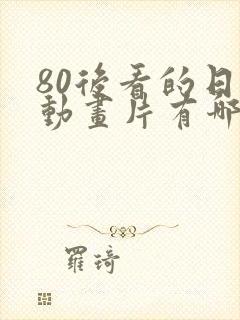 80後看的日
動畫片有哪
羅琦